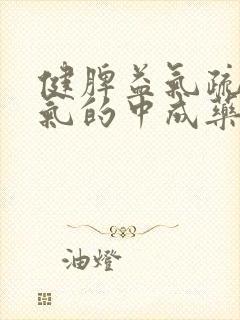 健脾益气疏
氣的中成藥
油燈